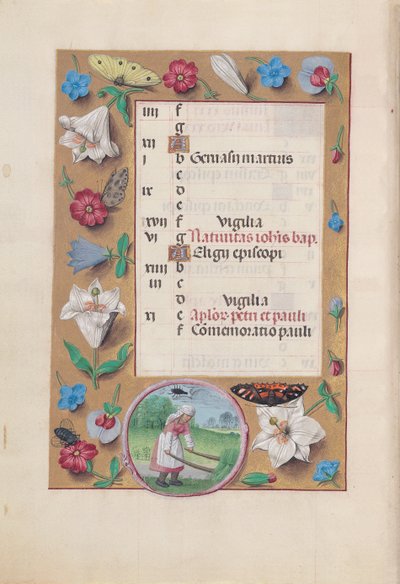 iiii f
g
xii A
i b Geruasij martiris
c
ix d
e
xvii f Vigilia
vi g Natiuitas iohis bap.
A Eligij episcopi
xiiii b
iii c
d Vigilia
xi e Aplor. petri et pauli
f Comemoratio pauli